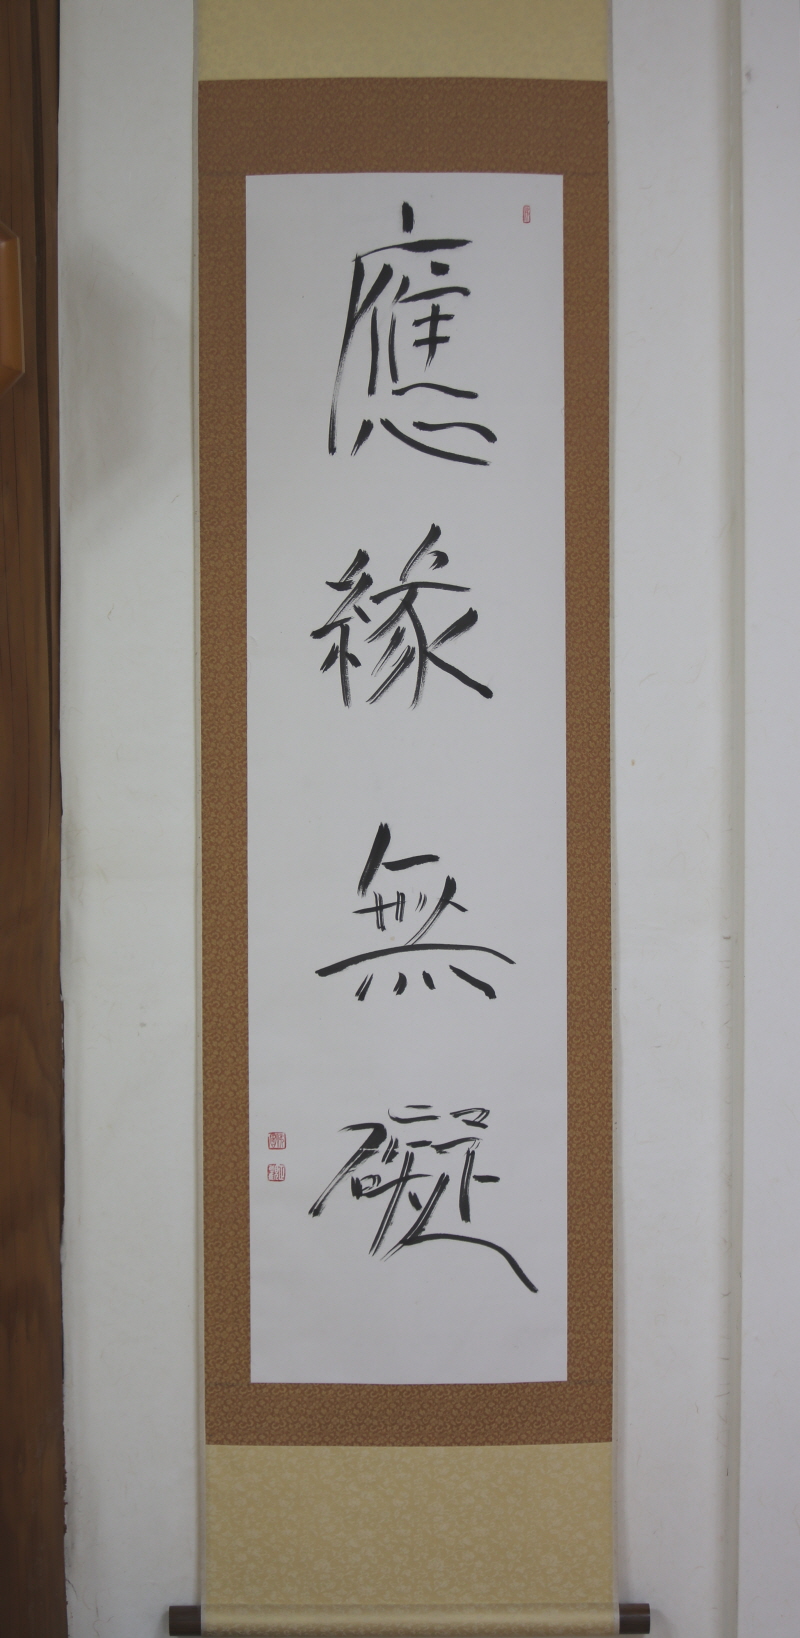 應緣無礙